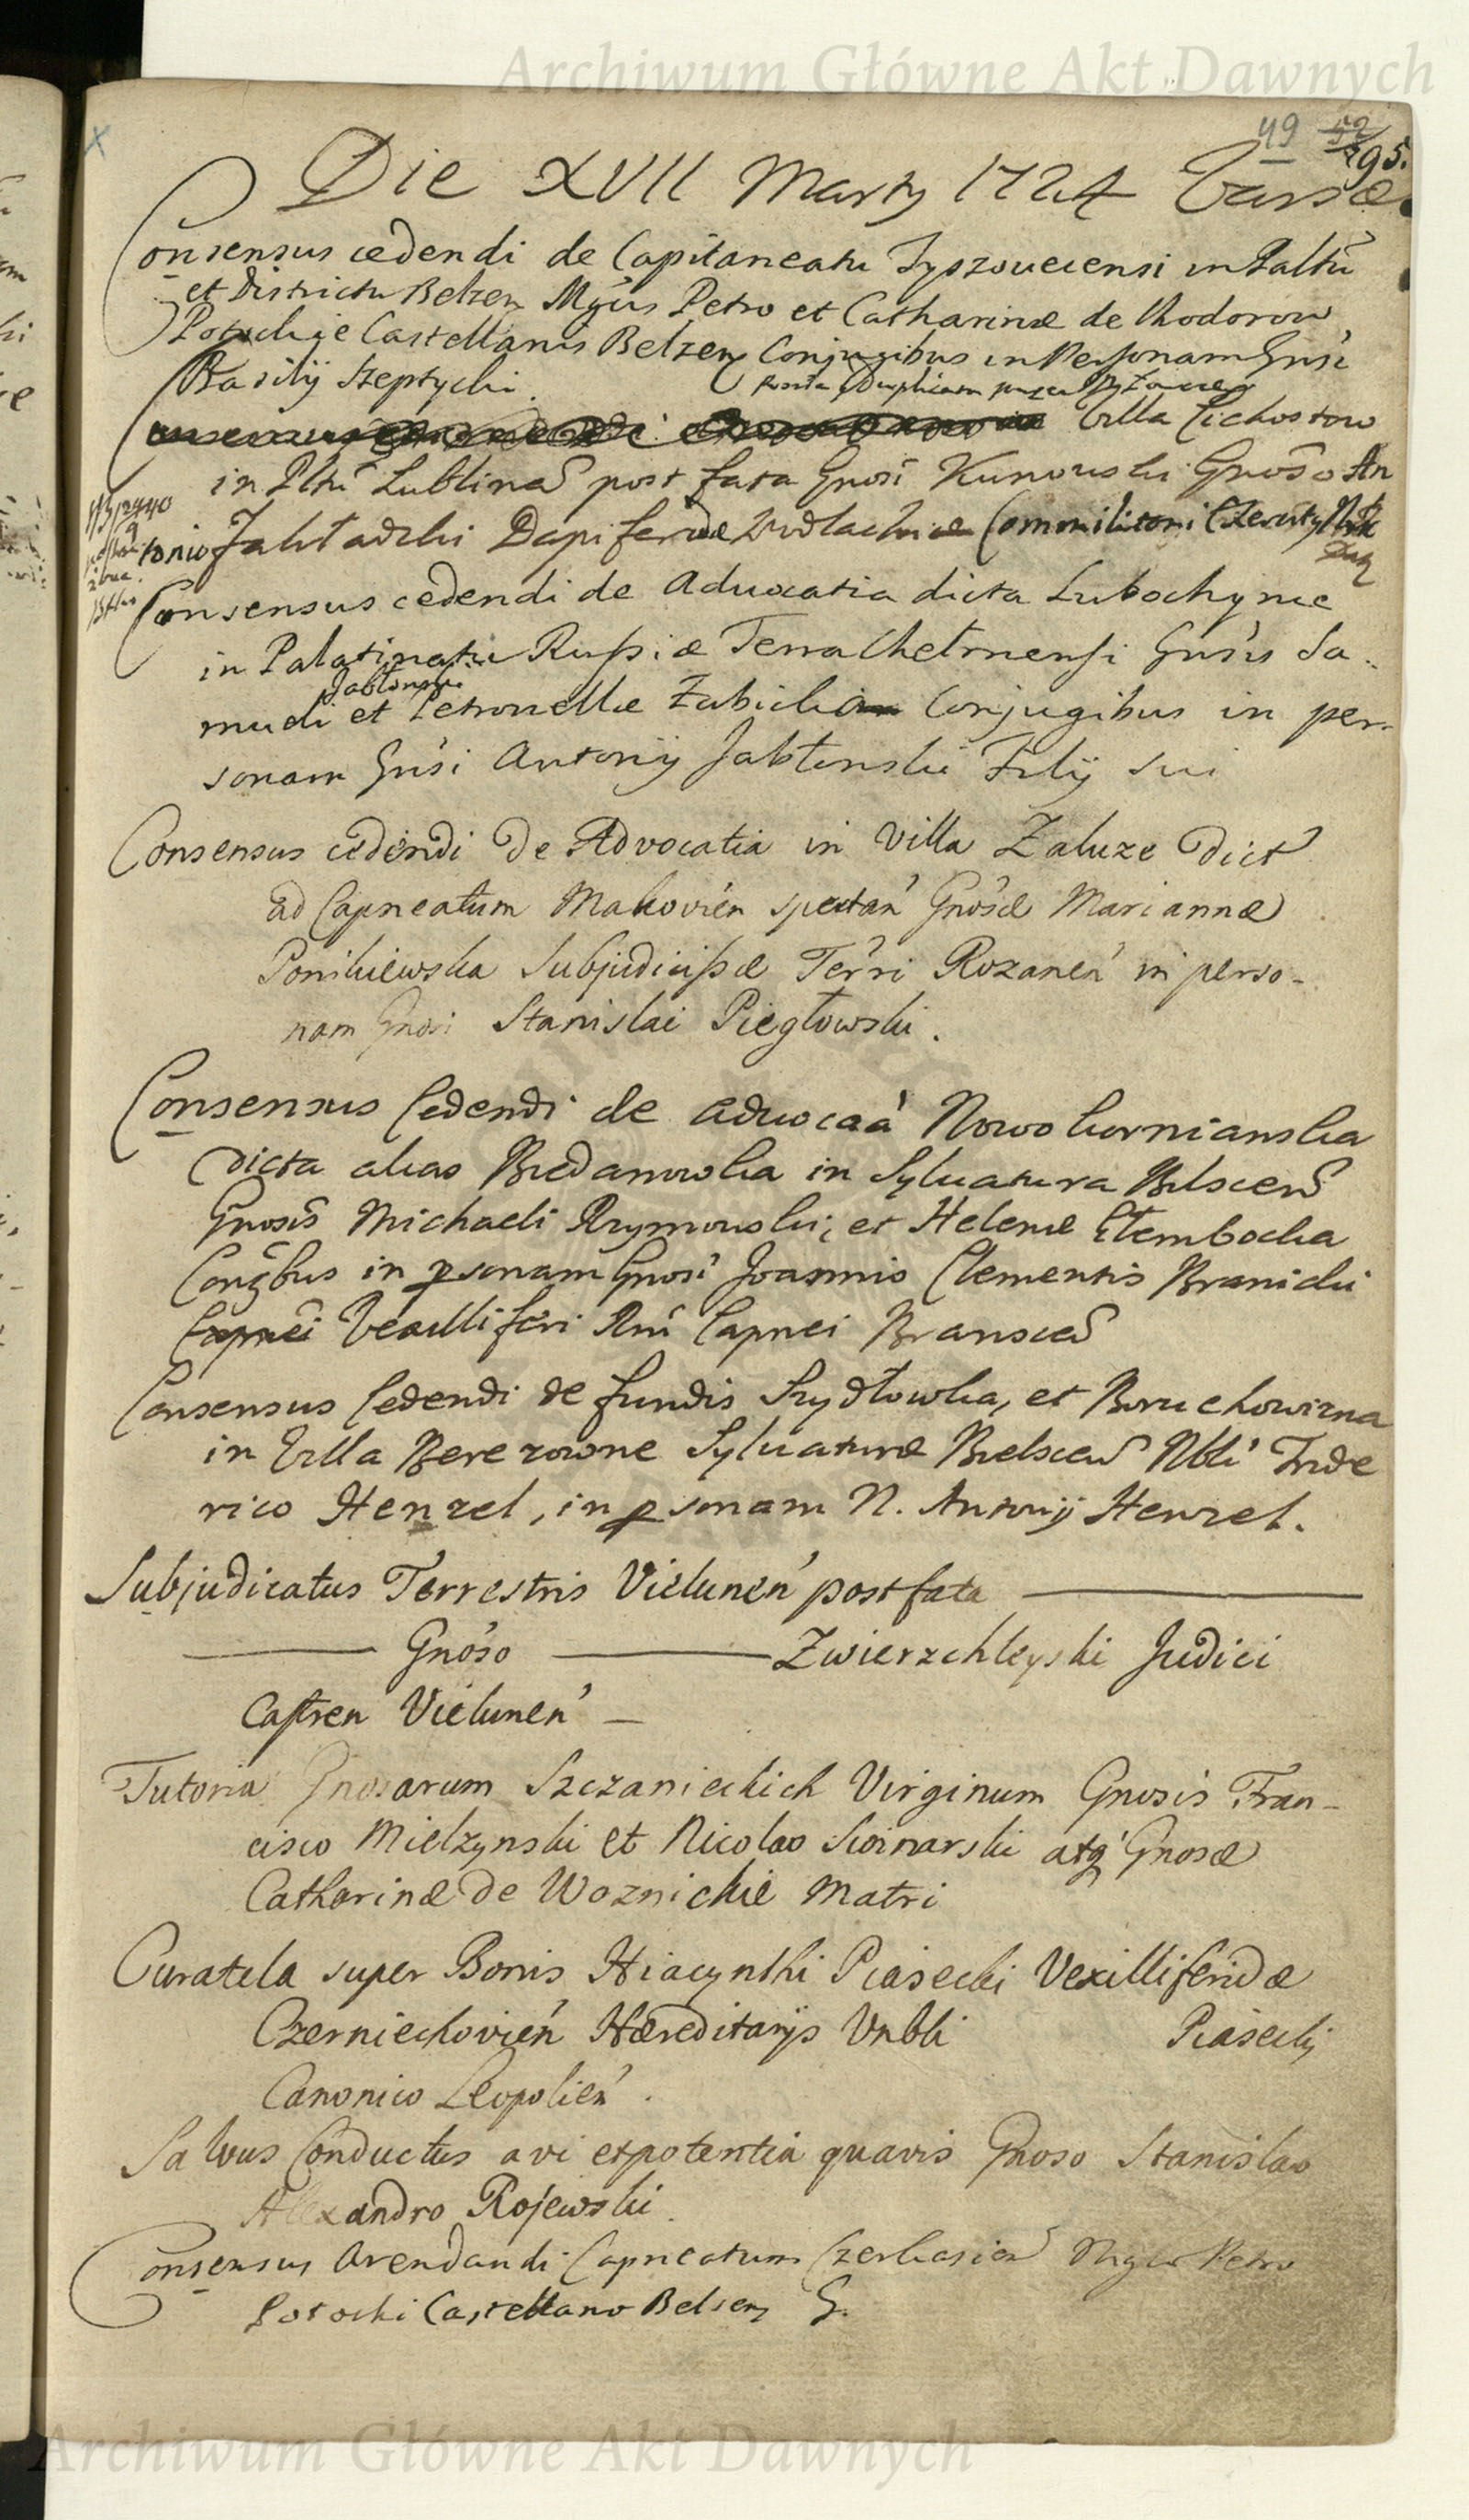 Archiwum Główne Akt Dawnych
49
195.
Die XVII Martij 1724 Varsæ.
Consensus cedendi de Capitaneatu Tyszoueiensi in Paltũ
et Districtu Belzen Mgcis Petro et Catharinæ de Chodorow
Potockije Castellanis Belzen Conjugibus in Personam Gnsi
Basilij Szeptycki
Villa Cichostow
in Pltũ Lublinen post fata Gnosi Kunowski Gnoso An
tonio Jabł Dapiferidæ Podlachiæ Commilitoni
Consensus cedendi de Aduocatia dicta Lubochynie
in Palatinatu Russiæ Terra Chelmensi Gnsis Sa-
Jablonski
mueli et Petronellæ Zabickian Conjugibus in per-
sonam Gnsi Antonij Jabłonski Filij sui
Consensus cedendi de Advocatia in Villa Zaluze dict
ad Capneatum Makovien spectań Gnosæ Mariannæ
Ponikiewska Subjudicissæ Terri Rozaneń in perso-
nam Gnosi Stanislai Piegłowski.
Consensus Cedendi de aduocaã Nowo kornianska
dicta alias Biedanowska in Syluatura Bilscen
Gnosis Michaeli Rzymowski, et Helenæ Ctembocka
Conigbus in psonam Gnosi Joannis Clementis Branicki
Capnei Vexilliferi Rni Capnei Branscen
Consensus Cedendi de fundis Szydłowka, et Boruchowizna
in Villa Berezowne Syluaturæ Bielscen Nbli Fride
rico Henzel, in psonam N. Antonij Henzel.
Subjudicatus Terrestris Vieluneń post fata
Gnoso Zwierzchleyski Judici
Castren Vieluneń
Tutoria Gnosarum Szczanieckich Virginum Gnosis Fran-
cisco Mielzynski et Nicolao Swinarski atq Gnosæ
Catharinæ de Woznickie Matri
Curatela super Bonis Hiacynthi Piasecki Vexilliferidæ
Czerniechovień Hæreditarijs Vnbli Piasecki
Canonico Leopolień.
Salvus Conductus a vi et potentia quavis Gnoso Stanislao
Alexandro Rojewski.
Consensus Arendandi Capneatum Czerkasien Mgco Petro
Potocki Castellano Belsen G.
Archiwum Główne Akt Dawnych